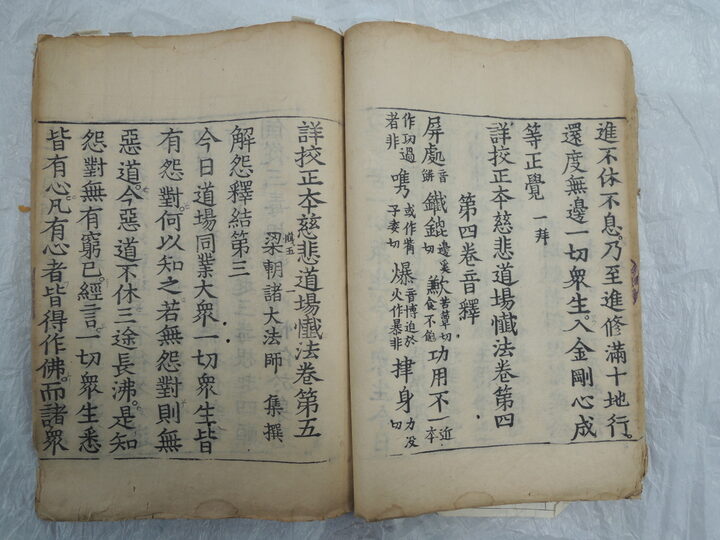 進不休不息。乃至進修滿十地行。
還度無邊一切衆生。入金剛心成
等正覺 一拜
詳挍正本慈悲道場懺法卷第四
第四卷音釋
屏處 音餅 鐵鋌 切 歉 苦蕈切 食不飽 功用不一 近本
作功過者非 嘴 或作觜 子委切 爆 音博迫於火作暴非 捽身 力没切
詳挍正本慈悲道場懺法卷第五
梁朝諸大法師 集撰
解怨釋結第三
今日道場同業大衆一切衆生皆
有怨對。何以知之若無怨對則無
惡道。今惡道不休三途長沸。是知
怨對無有窮已經言一切衆生悉
皆有心。凡有心者皆得作佛。而諸衆